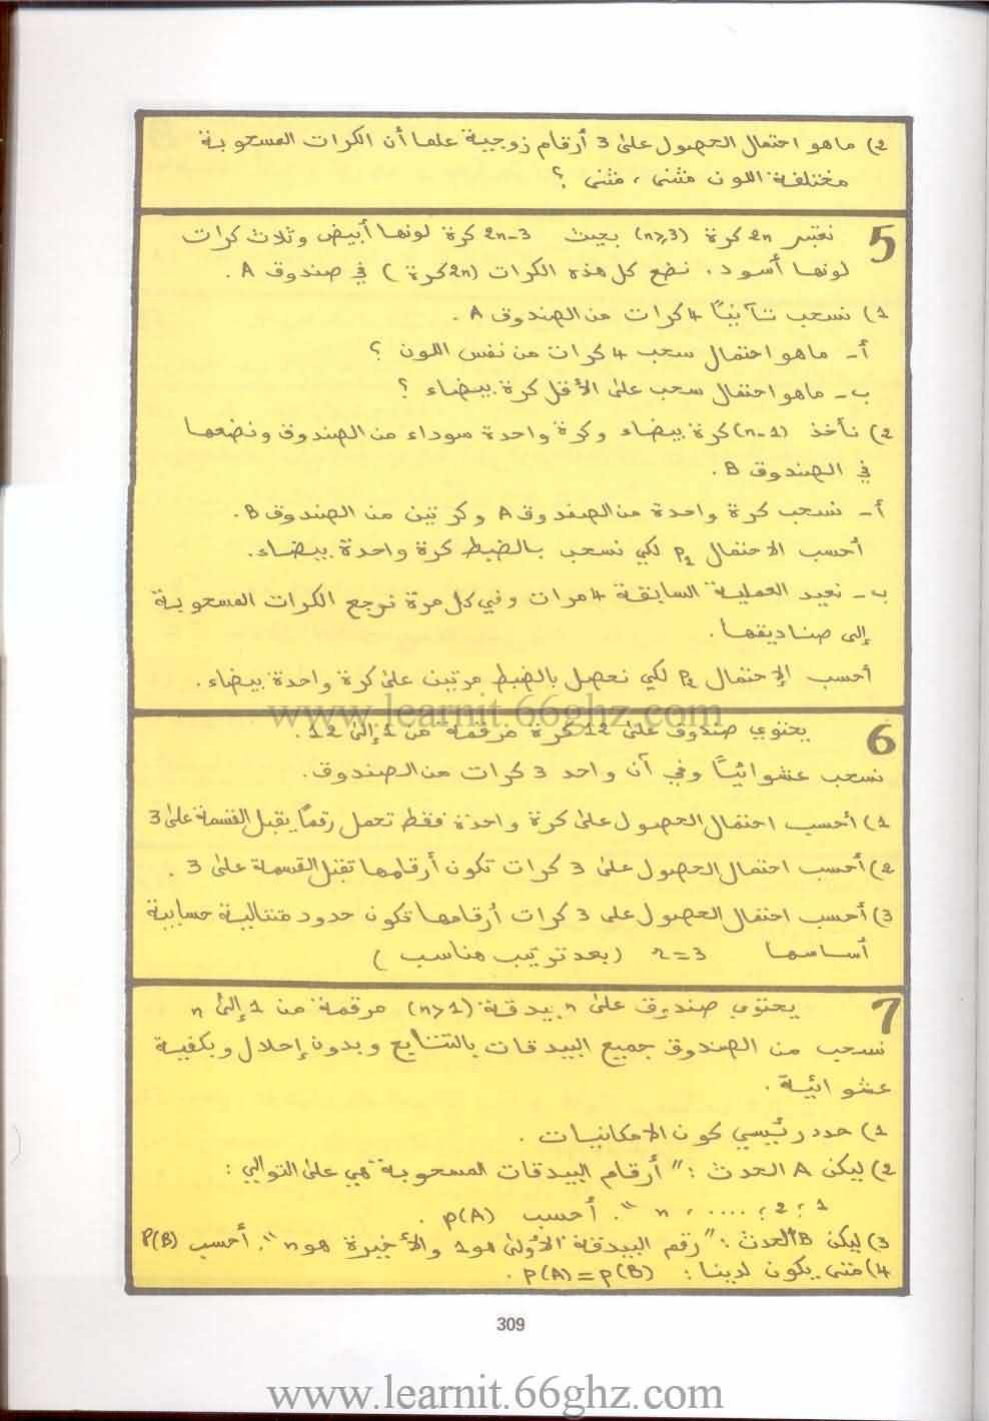 2) ماهو احتمال الحصول على 3 أرقام زوجية علما أن الكرات المسحوبة
مختلفة اللون مثنى ، مثنى ؟
5 نعتبر 2n كرة (n≥3) بحيث 2n-3 كرة لونها أبيض وثلاث كرات
لونها أسود . نضع كل هذه الكرات (2n كرة) في صندوق A .
1) نسحب تآنيا 4 كرات من الصندوق A .
أ- ماهو احتمال سحب 4 كرات من نفس اللون ؟
ب- ماهو احتمال سحب على الأقل كرة بيضاء ؟
2) نأخذ (n-1) كرة بيضاء وكرة واحدة سوداء من الصندوق ونضعها
في الصندوق B .
أ- نسحب كرة واحدة من الصندوق A وكرتين من الصندوق B .
أحسب الاحتمال p₁ لكي نسحب بالضبط كرة واحدة بيضاء .
ب- نعيد العملية السابقة 4 مرات وفي كل مرة نرجع الكرات المسحوبة
إلى صناديقها .
أحسب الإحتمال p₂ لكي نحصل بالضبط مرتين على كرة واحدة بيضاء .
www.learnit.66ghz.com
6 يحتوي صندوق على 12 كرة مرقمة من 1 إلى 12 .
نسحب عشوائيا وفي آن واحد 3 كرات من الصندوق .
1) أحسب احتمال الحصول على كرة واحدة فقط تحمل رقما يقبل القسمة على 3
2) أحسب احتمال الحصول على 3 كرات تكون أرقامها تقبل القسمة على 3 .
3) أحسب احتمال الحصول على 3 كرات أرقامها تكون حدود متتالية حسابية
أساسها r=3 (بعد ترتيب مناسب)
7 يحتوي صندوق على n بيدقة (n>1) مرقمة من 1 إلى n
نسحب من الصندوق جميع البيدقات بالتتابع وبدون إحلال وبكفية
عشوائية .
1) حدد رئيسي كون الامكانيات .
2) ليكن A الحدث : " أرقام البيدقات المسحوبة هي على التوالي :
1 ; 2 ; .... , n " . أحسب p(A) .
3) ليكن B الحدث : " رقم البيدقة الأولى هو 1 والأخيرة هو n " . أحسب P(B)
4) متى يكون لدينا : p(A) = p(B) .
309
www.learnit.66ghz.com